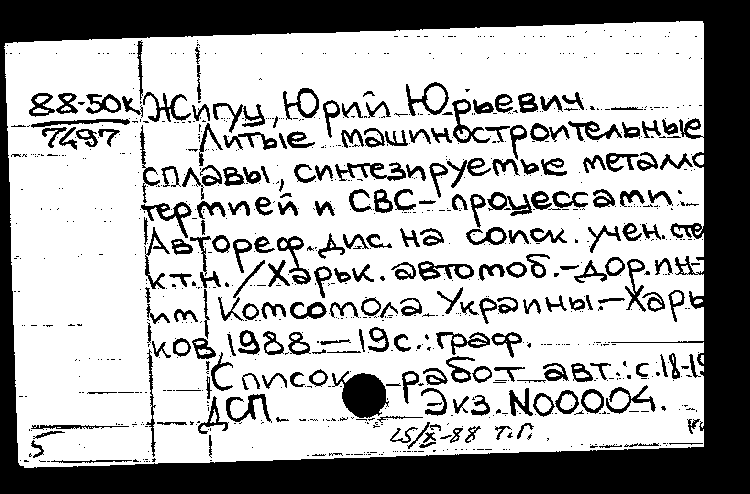 88-50к Жигуц, Юрий Юрьевич.
7497 Литые машиностроительные
сплавы, синтезируемые металло
термией и СВС-процессами:
Автореф. дис. на соиск. учен. сте
к.т.н. / Харьк. автомоб.-дор. ин-т
им. Комсомола Украины.—Харь
ков, 1988.—19с.:граф.
Список работ авт.: с.18-19
ДСП. Экз. N00004.
5 25/X-88 т.г.